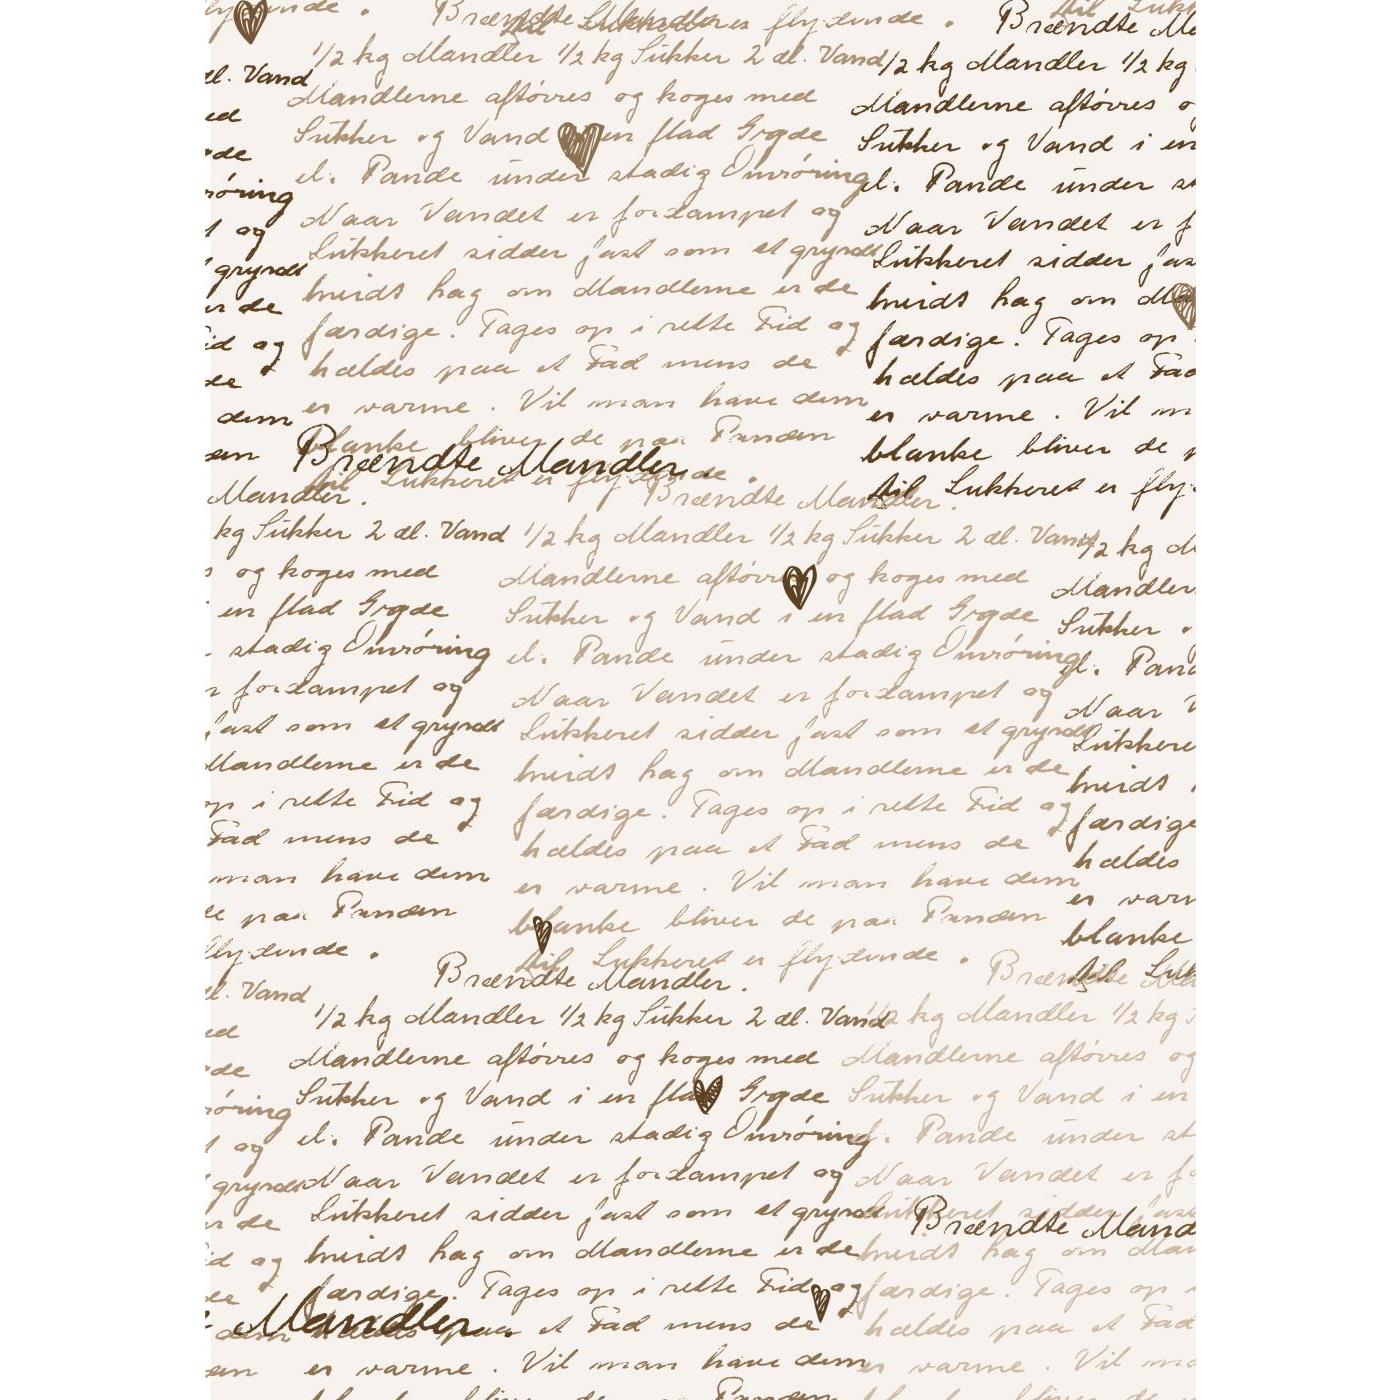 Brændte
Sukkeret er flydende .
Brændte
1/2 kg Mandler 1/2 kg Sukker 2 dl. Vand
Mandlerne aftörres og koges med
Sukker og Vand en flad Gryde
el. Pande under stadig Omröring
Naar Vandet er fordampet og
Sukkeret sidder fast som et grynet
hvidt lag om Mandlerne er de
færdige. Tages op i rette Tid og
hældes paa et Fad mens de
er varme . Vil man have dem
blanke bliver de paa Panden
til Sukkeret er flydende .
1/2 kg Mandler 1/2 kg
Mandlerne aftörres o
Sukker og Vand i en
el. Pande under st
Naar Vandet er f
Sukkeret sidder fas
hvidt lag om
færdige. Tages op
hældes paa et Fad
er varme . Vil m
blanke bliver de p
til Sukkeret er fly
dl. Vand
ed
de
röring
t og
grynet
er de
id og
de
dem
en
Brændte Mandler.
Mandler.
kg Sukker 2 dl. Vand
og koges med
en flad Gryde
stadig Omröring
r fordampet og
fast som et grynet
Mandlerne er de
op i rette Tid og
Fad mens de
man have dem
de paa Panden
flydende .
Brændte Mandler.
1/2 kg Mandler 1/2 kg Sukker 2 dl. Vand
Mandlerne aftörres og koges med
Sukker og Vand i en flad Gryde
el. Pande under stadig Omröring
Naar Vandet er fordampet og
Sukkeret sidder fast som et grynet
hvidt lag om Mandlerne er de
færdige. Tages op i rette Tid og
hældes paa et Fad mens de
er varme . Vil man have dem
blanke bliver de paa Panden
til Sukkeret er flydende .
1/2 kg M
Mandler
Sukker
el. Pand
Naar V
Sukkere
hvidt
færdige
hældes
er varm
blanke
til Suk
dl. Vand
ed
de
röring
t og
grynet
er de
id og
de
dem
en
Brændte Mandler.
1/2 kg Mandler 1/2 kg Sukker 2 dl. Vand
Mandlerne aftörres og koges med
Sukker og Vand i en flad Gryde
el. Pande under stadig Omröring
Naar Vandet er fordampet og
Sukkeret sidder fast som et grynet
hvidt lag om Mandlerne er de
færdige. Tages op i rette Tid og
hældes paa et Fad mens de
er varme . Vil man have dem
Mandler.
Brændte
1/2 kg Mandler 1/2 kg
Mandlerne aftörres og
Sukker og Vand i en
el. Pande under st
Naar Vandet er fo
Sukkeret sidder fast
Brændte Mand
hvidt lag om Man
færdige. Tages op i
hældes paa et Fad
er varme . Vil ma